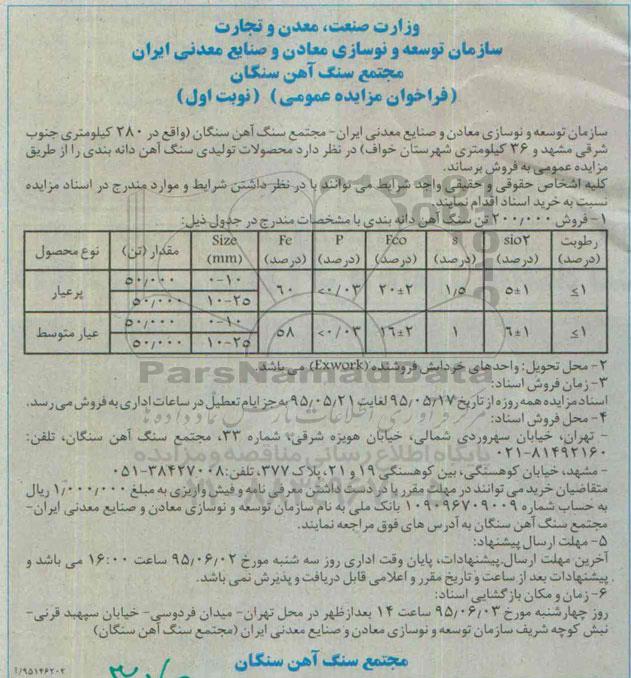 وزارت صنعت، معدن و تجارت
سازمان توسعه و نوسازی معادن و صنایع معدنی ایران
مجتمع سنگ آهن سنگان
(فراخوان مزایده عمومی) (نوبت اول)
سازمان توسعه و نوسازی معادن و صنایع معدنی ایران- مجتمع سنگ آهن سنگان (واقع در ۲۸۰ کیلومتری جنوب
شرقی مشهد و ۳۶ کیلومتری شهرستان خواف) در نظر دارد محصولات تولیدی سنگ آهن دانه بندی را از طریق
مزایده عمومی به فروش برساند.
کلیه اشخاص حقوقی و حقیقی واجد شرایط می توانند با در نظر داشتن شرایط و موارد مندرج در اسناد مزایده
نسبت به خرید اسناد اقدام نمایند.
۱- فروش ۲۰۰٫۰۰۰ تن سنگ آهن دانه بندی با مشخصات مندرج در جدول ذیل:
نوع محصول مقدار (تن) Size (mm) Fe (درصد) P (درصد) Feo (درصد) s (درصد) sio۲ (درصد) رطوبت (درصد)
پرعیار ۵۰٫۰۰۰ ۰-۱۰ ۶۰ <۰/۰۳ ۲۰±۲ ۱٫۵ ۵±۱ ≤۱
۵۰٫۰۰۰ ۱۰-۲۵
عیار متوسط ۵۰٫۰۰۰ ۰-۱۰ ۵۸ <۰/۰۳ ۱۶±۲ ۱ ۶±۱ ≤۱
۵۰٫۰۰۰ ۱۰-۲۵
۲- محل تحویل: واحدهای خردایش فروشنده (Exwork) می باشد.
۳- زمان فروش اسناد:
اسناد مزایده همه روزه از تاریخ ۹۵٫۰۵٫۱۷ لغایت ۹۵٫۰۵٫۲۱ به جز ایام تعطیل در ساعات اداری به فروش می رسد.
۴- محل فروش اسناد:
- تهران، خیابان سهروردی شمالی، خیابان هویزه شرقی، شماره ۳۳، مجتمع سنگ آهن سنگان، تلفن:
۰۲۱-۸۱۴۹۲۱۶۰
- مشهد، خیابان کوهسنگی، بین کوهسنگی ۱۹ و ۲۱، پلاک ۳۷۷، تلفن: ۳۸۴۲۷۰۰۸-۰۵۱
متقاضیان خرید می توانند در مهلت مقرر با در دست داشتن معرفی نامه و فیش واریزی به مبلغ ۱٫۰۰۰٫۰۰۰ ریال
به حساب شماره ۰۱۰۹۰۹۶۷۰۹۰۰۹ بانک ملی به نام سازمان توسعه و نوسازی معادن و صنایع معدنی ایران-
مجتمع سنگ آهن سنگان به آدرس های فوق مراجعه نمایند.
۵- مهلت ارسال پیشنهاد:
آخرین مهلت ارسال پیشنهادات، پایان وقت اداری روز سه شنبه مورخ ۹۵٫۰۶٫۰۲ ساعت ۱۶:۰۰ می باشد و
پیشنهادات بعد از ساعت و تاریخ مقرر و اعلامی قابل دریافت و پذیرش نمی باشد.
۶- زمان و مکان بازگشایی اسناد:
روز چهارشنبه مورخ ۹۵٫۰۶٫۰۳ ساعت ۱۴ بعدازظهر در محل تهران- میدان فردوسی- خیابان سپهبد قرنی-
نبش کوچه شریف سازمان توسعه و نوسازی معادن و صنایع معدنی ایران (مجتمع سنگ آهن سنگان)
مجتمع سنگ آهن سنگان
ParsNamadData
پایگاه اطلاع رسانی مناقصه و مزایده